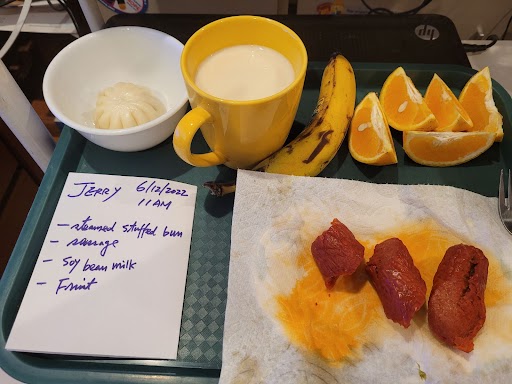 JERRY 6/12/2022
11AM
- steamed stuffed bun
- sausage
- Soy bean milk
- Fruit
hp